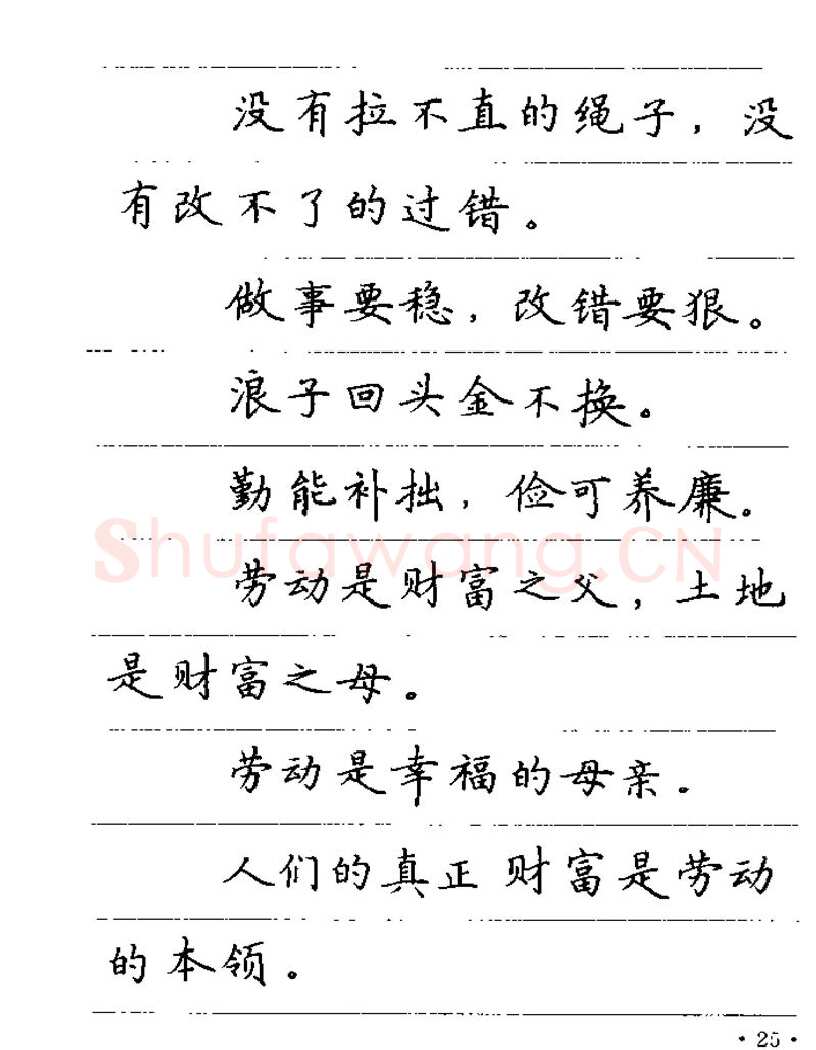 没有拉不直的绳子，没
有改不了的过错。
做事要稳，改错要狠。
浪子回头金不换。
勤能补拙，俭可养廉。
Shufawang.CN
劳动是财富之父，土地
是财富之母。
劳动是幸福的母亲。
人们的真正财富是劳动
的本领。
·25·